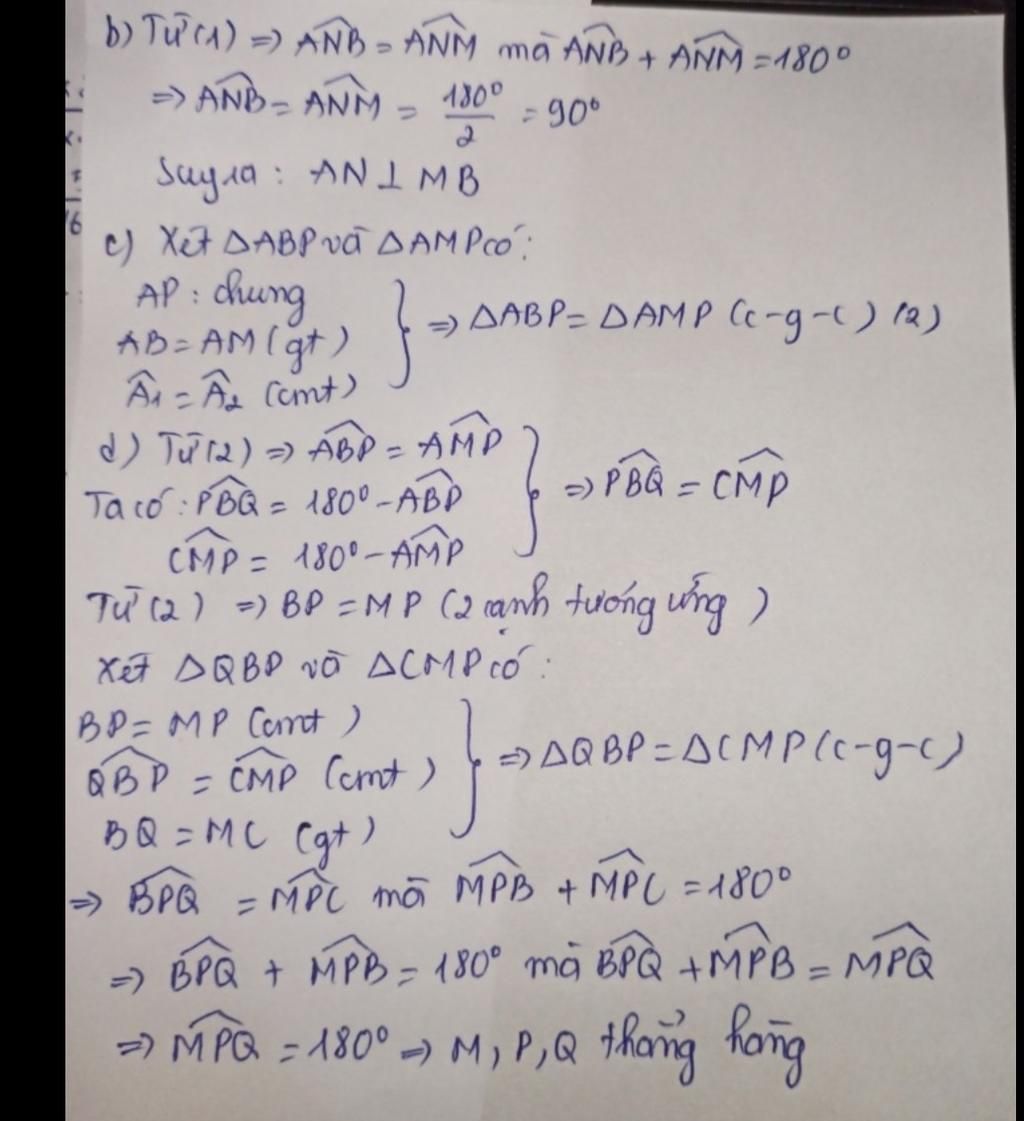 b) Từ (1) => \widehat{ANB} = \widehat{ANM} mà \widehat{ANB} + \widehat{ANM} = 180°
=> \widehat{ANB} = \widehat{ANM} = \frac{180°}{2} = 90°
Suy ra : AN ⊥ MB
c) Xét △ABP và △AMP có :
AP : chung
AB = AM (gt)
\widehat{A}1 = \widehat{A}2 (cmt)
} => △ABP = △AMP (c-g-c) (2)
d) Từ (2) => \widehat{ABP} = \widehat{AMP}
Ta có : \widehat{PBQ} = 180° - \widehat{ABP}
\widehat{CMP} = 180° - \widehat{AMP}
} => \widehat{PBQ} = \widehat{CMP}
Từ (2) => BP = MP (2 cạnh tướng ứng)
Xét △QBP và △CMP có :
BP = MP (cmt)
\widehat{QBP} = \widehat{CMP} (cmt)
BQ = MC (gt)
} => △QBP = △CMP (c-g-c)
=> \widehat{BPQ} = \widehat{MPC} mà \widehat{MPB} + \widehat{MPC} = 180°
=> \widehat{BPQ} + \widehat{MPB} = 180° mà \widehat{BPQ} + \widehat{MPB} = \widehat{MPQ}
=> \widehat{MPQ} = 180° => M, P, Q thẳng hàng